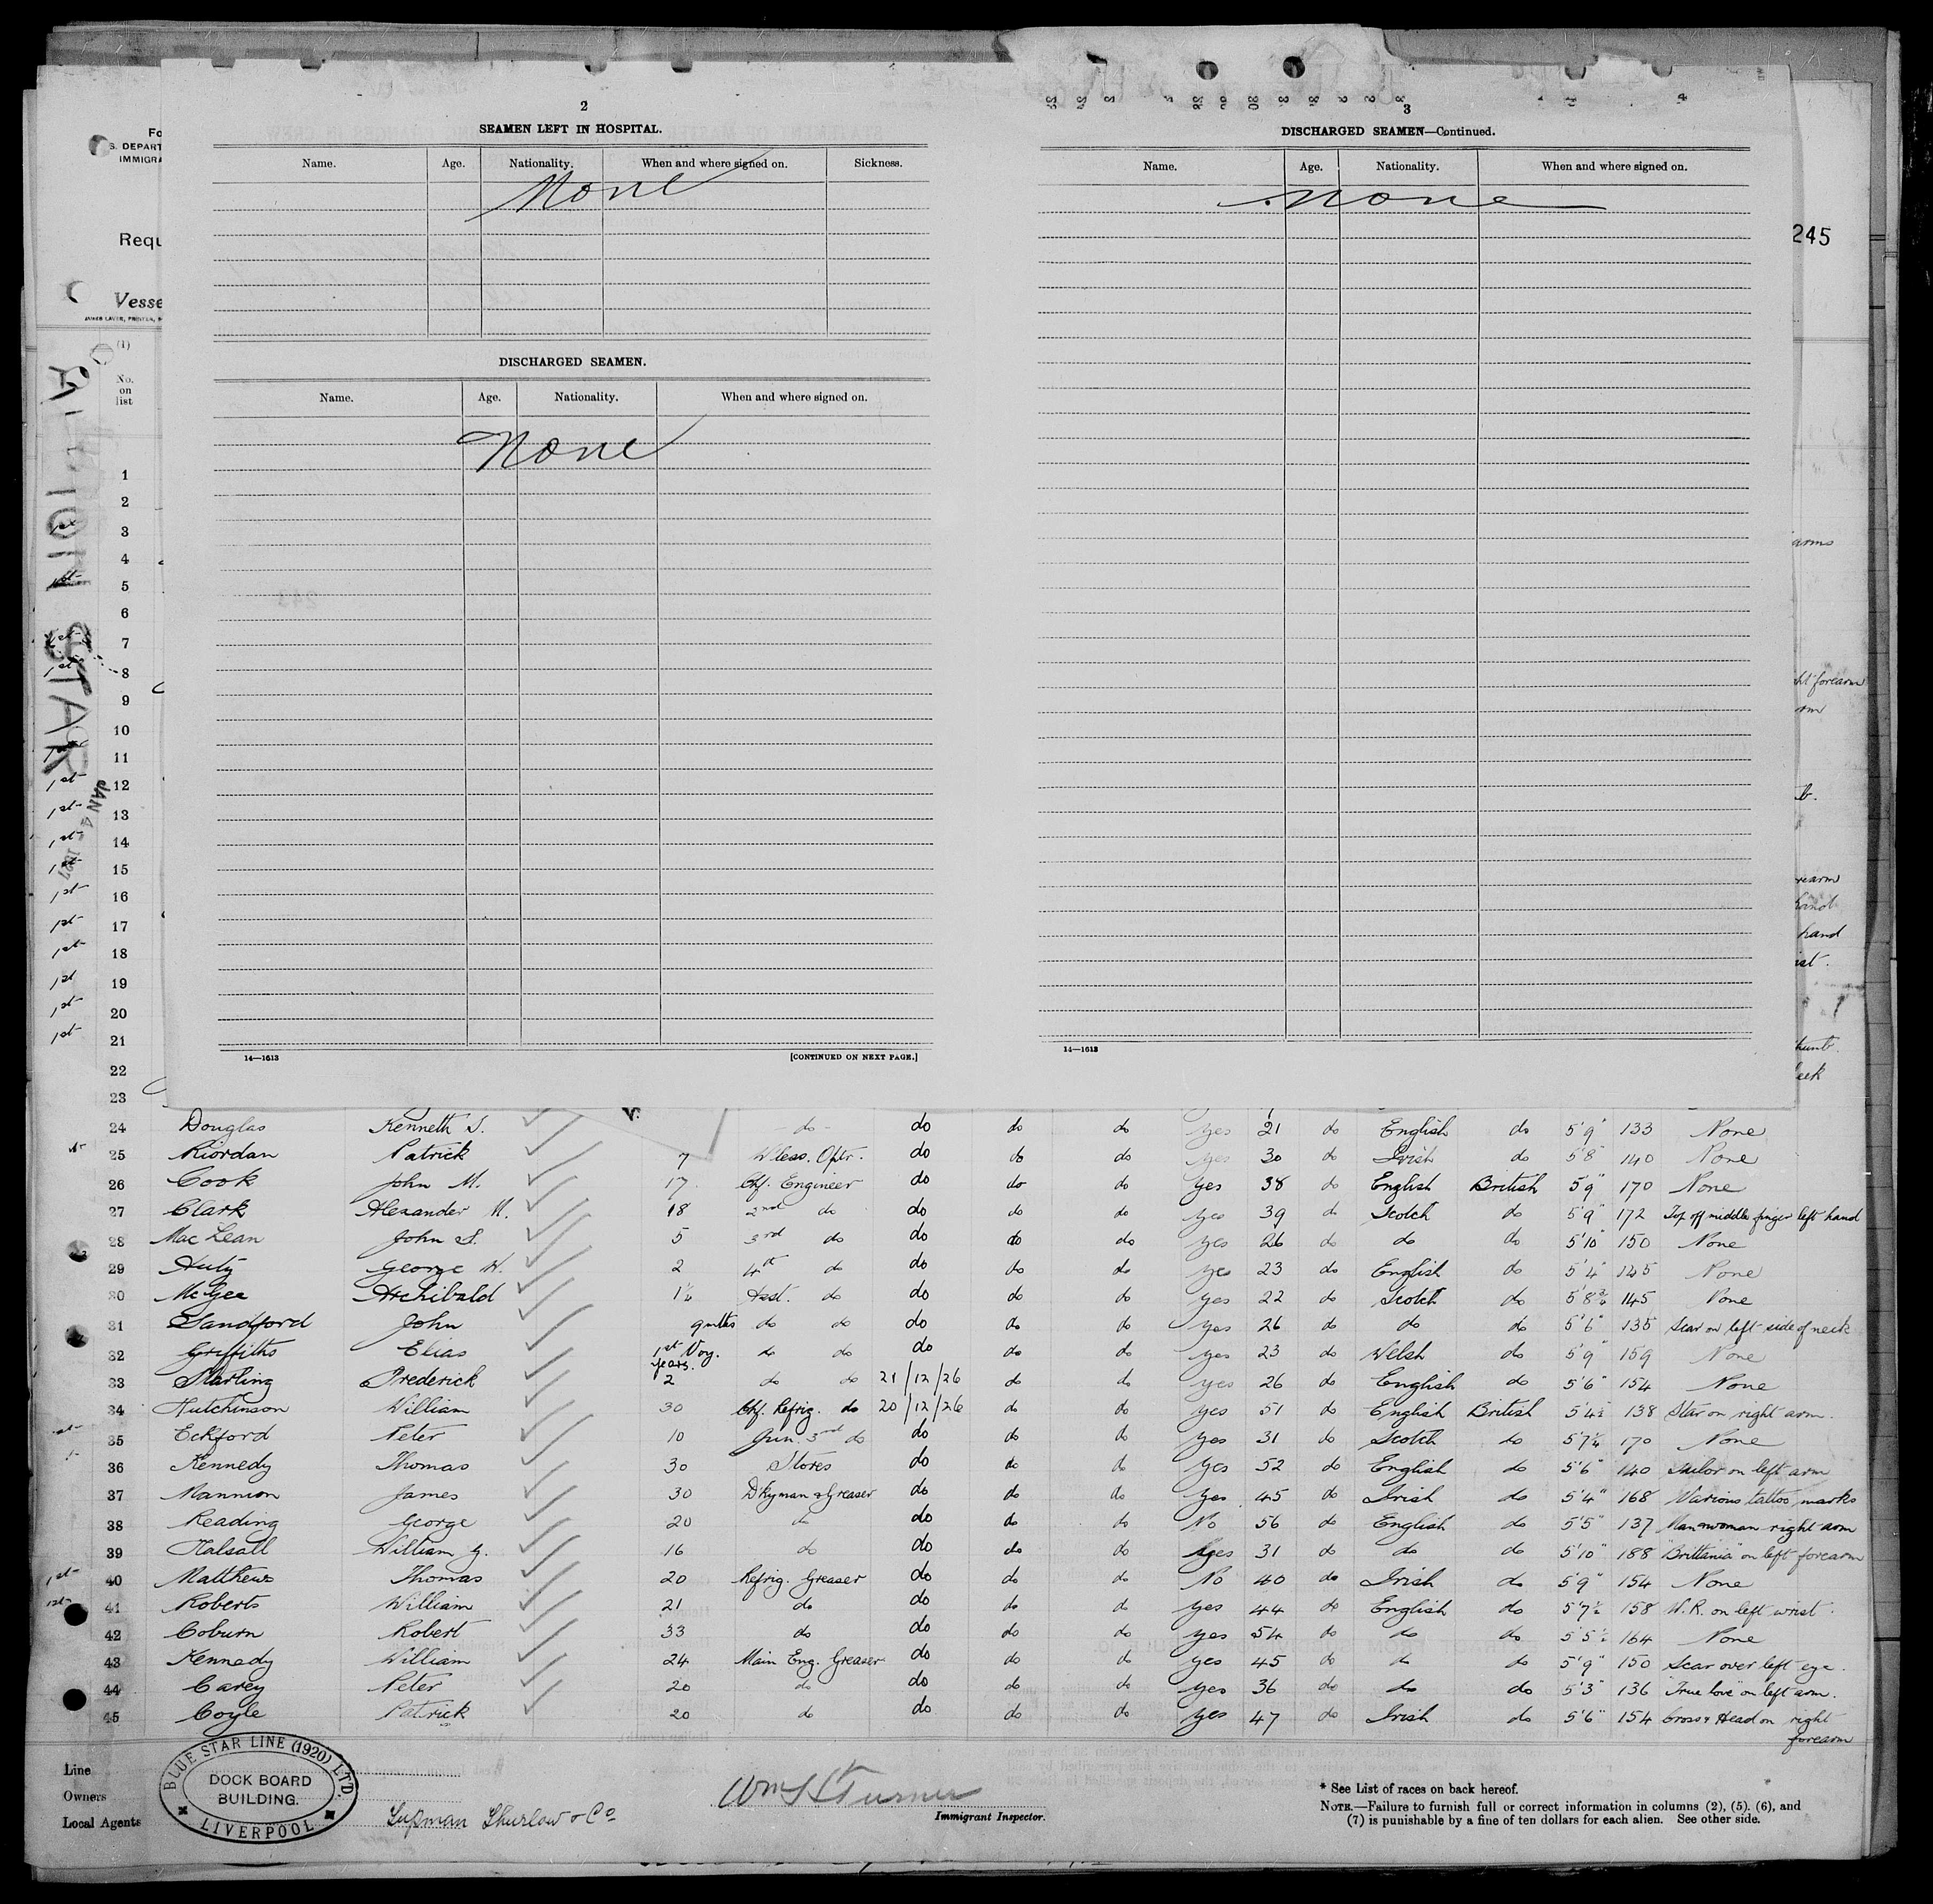 2
SEAMEN LEFT IN HOSPITAL.
Name. Age. Nationality. When and where signed on. Sickness.
None
DISCHARGED SEAMEN.
Name. Age. Nationality. When and where signed on.
None
14—1613 [CONTINUED ON NEXT PAGE.]
3
DISCHARGED SEAMEN—Continued.
Name. Age. Nationality. When and where signed on.
None
14—1613
245
Requ
Vesse
(1)
No.
on
list
STAR
JAN 4 1927
1
2
3
4
5
6
7
8
9
10
11
12
13
14
15
16
17
18
19
20
21
22
23
arms
forearm
hand
24 Douglas Kenneth S. do do do do yes 21 do English do 5'9" 133 None
25 Riordan Patrick 7 W'less. Optr. do do do yes 30 do Irish do 5'8 140 None
26 Cook John M. 17 Chf. Engineer do do do yes 38 do English British 5'9" 170 None
27 Clark Alexander M. 18 2nd do do do do yes 39 do Scotch do 5'9" 172 Top off middle finger left hand
28 Mac Lean John S. 5 3rd do do do do yes 26 do do do 5'10" 150 None
29 George W. 2 4th do do do do yes 23 do English do 5'4" 145 None
30 McGee Archibald 1½ Asst. do do do do yes 22 do Scotch do 5'8¾ 145 None
31 Sandford John 9 mths do do do do do yes 26 do do do 5'6" 135 Scar on left side of neck
32 Griffiths Elias 1st Voy. do do do do do yes 23 do Welsh do 5'9" 159 None
33 Starling Frederick years. 2 do do 21/12/26 do do yes 26 do English do 5'6" 154 None
34 Hutchinson William 30 Chf. Refrig. do 20/12/26 do do yes 51 do English British 5'4½ 138 Star on right arm.
35 Eckford Peter 10 Jun. 3rd do do do do yes 31 do Scotch do 5'7¼ 170 None
36 Kennedy Thomas 30 Stores do do do yes 52 do English do 5'6" 140 Sailor on left arm
37 Mannion James 30 Dkyman & Greaser do do do yes 45 do Irish do 5'4" 168 Various tattoo marks
38 Reading George 20 do do do do No 56 do English do 5'5" 137 Man & woman right arm
39 Halsall William G. 16 do do do do yes 31 do do do 5'10" 188 "Brittania" on left forearm
40 Matthews Thomas 20 Refrig. Greaser do do do No 40 do Irish do 5'9" 154 None
41 Roberts William 21 do do do do yes 44 do English do 5'7½ 158 W.R. on left wrist.
42 Coburn Robert 33 do do do do yes 54 do do do 5'5½ 164 None
43 Kennedy William 24 Main Eng. Greaser do do do yes 45 do do do 5'9" 150 Scar over left eye.
44 Carey Peter 20 do do do do yes 36 do do do 5'3" 136 "True love" on left arm.
45 Coyle Patrick 20 do do do do yes 47 do Irish do 5'6" 154 Cross & Head on right
forearm
Line
Owners
Local Agents
BLUE STAR LINE (1920) LTD.
DOCK BOARD
BUILDING.
LIVERPOOL
Wm S Turner
Immigrant Inspector.
* See List of races on back hereof.
NOTE.—Failure to furnish full or correct information in columns (2), (5). (6), and
(7) is punishable by a fine of ten dollars for each alien. See other side.